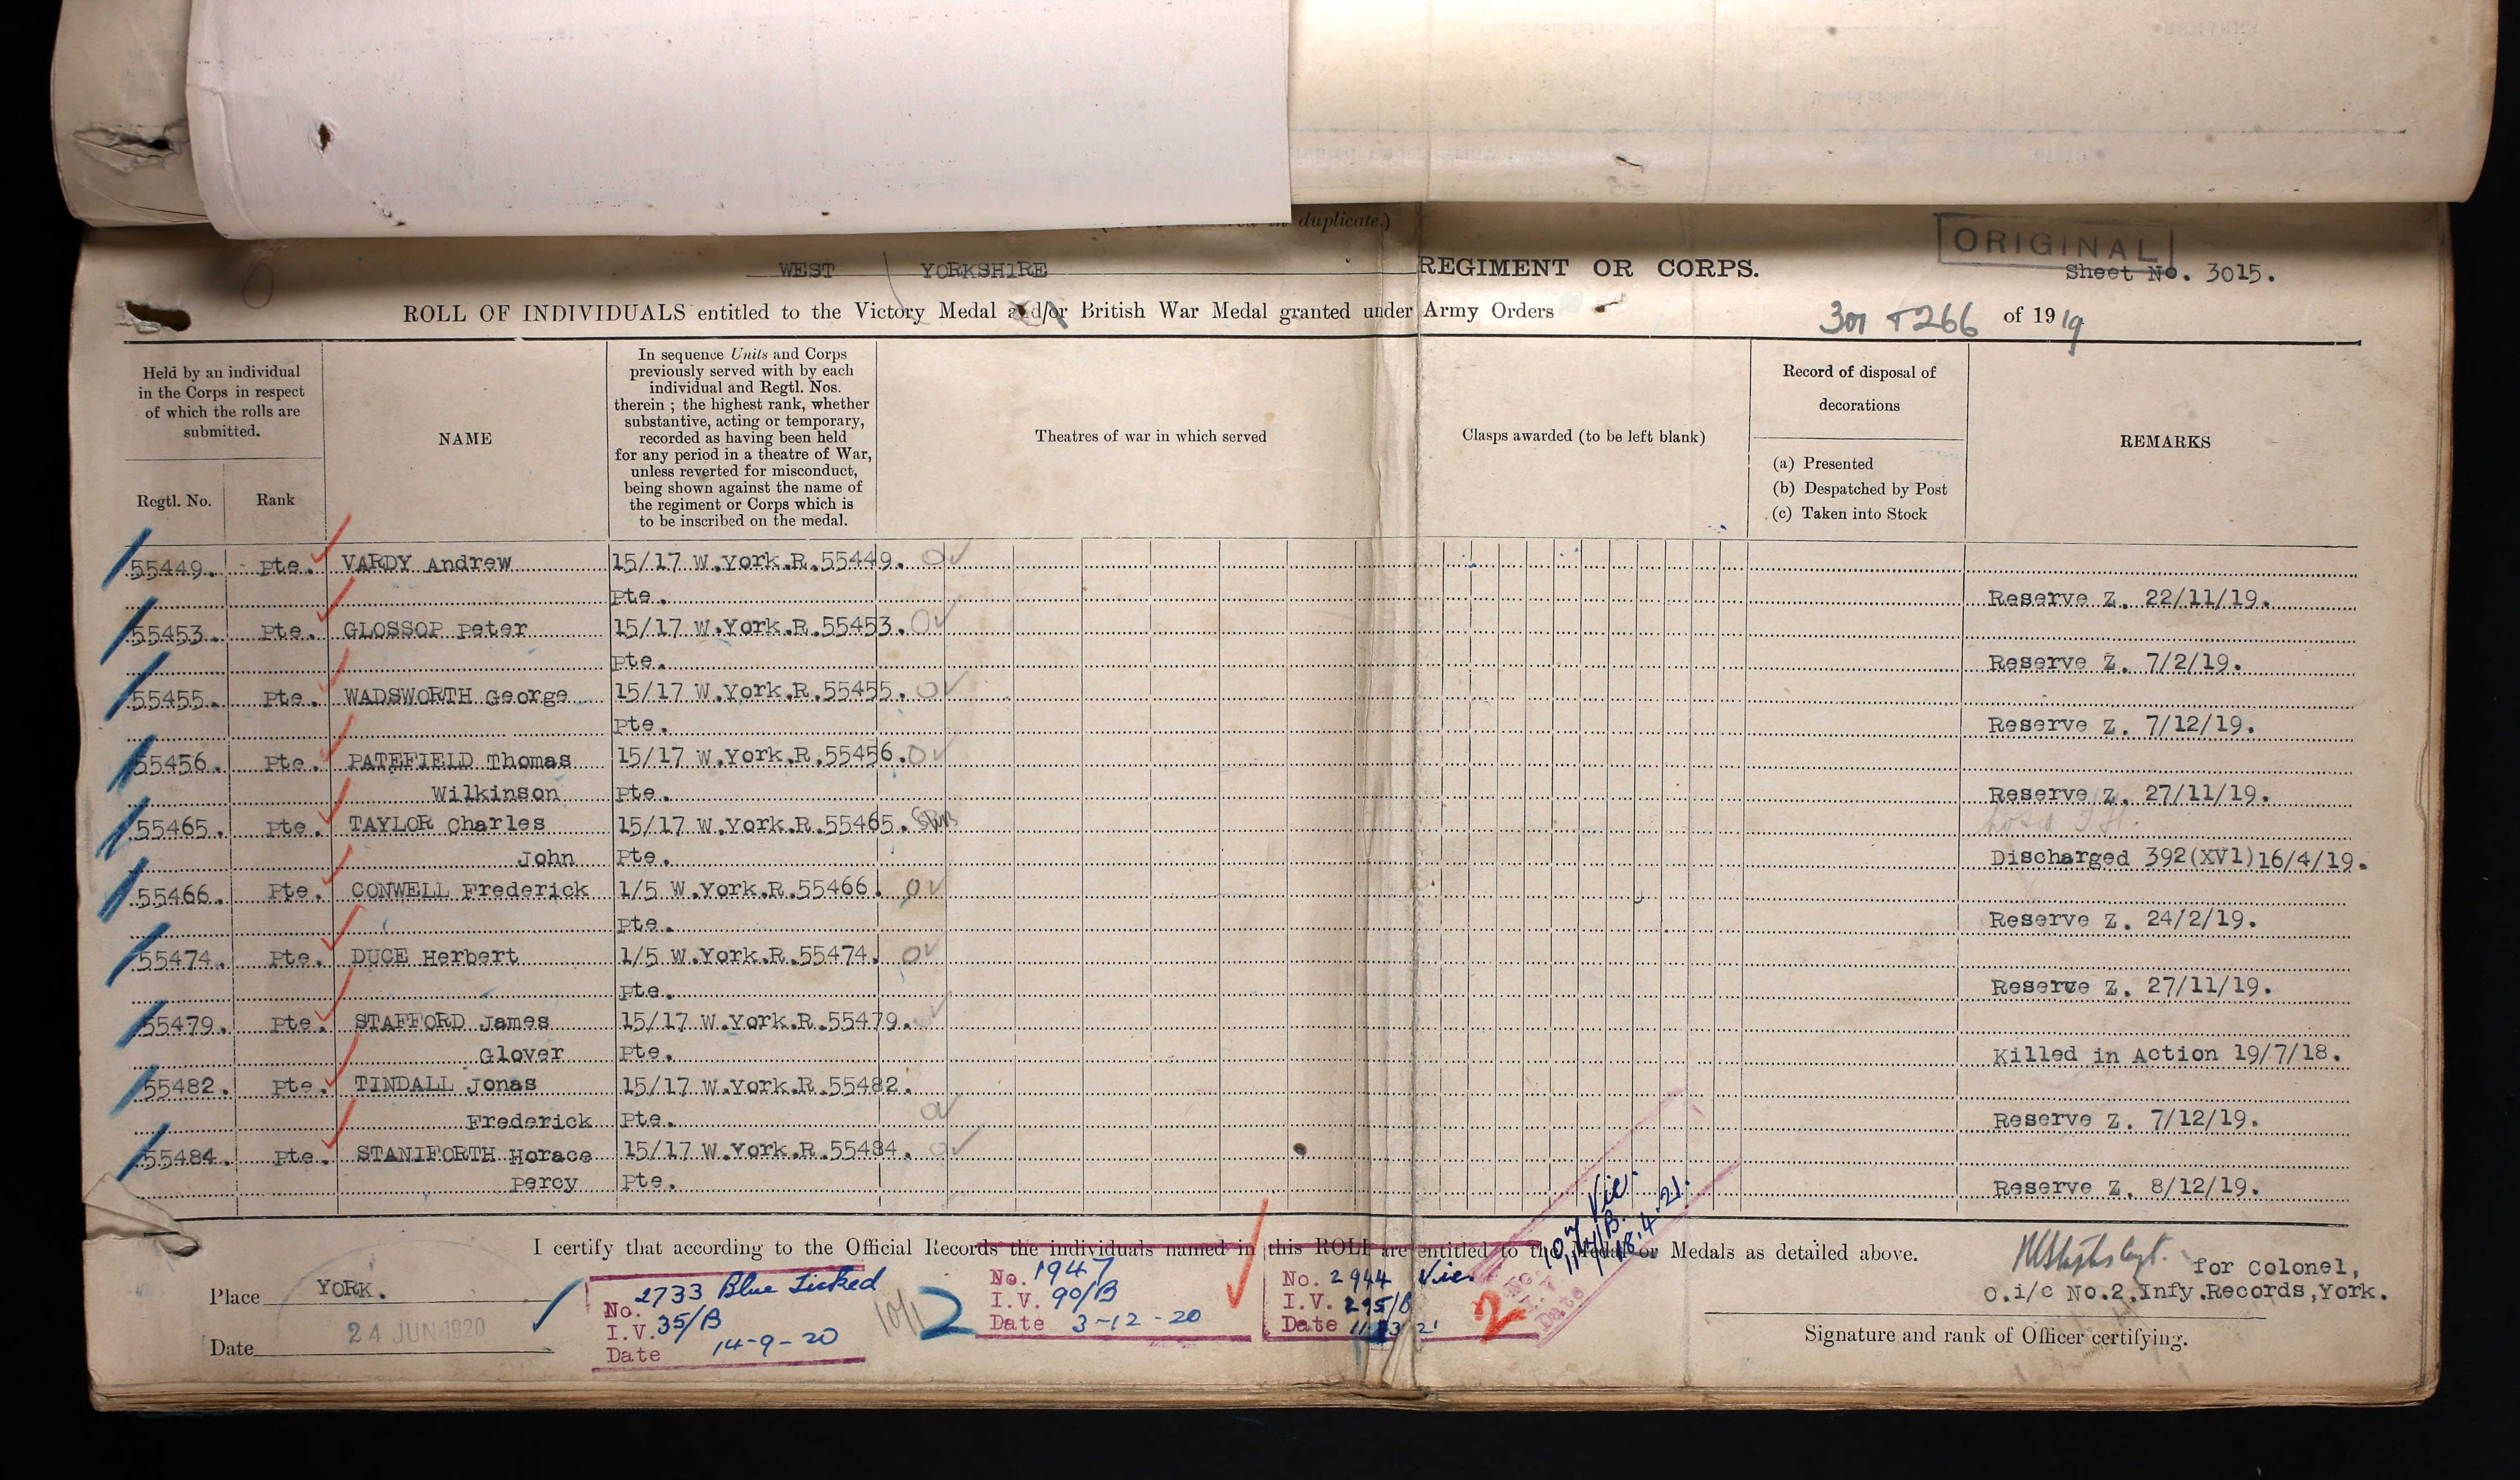 duplicate.)
ORIGINAL
WEST YORKSHIRE REGIMENT OR CORPS.
Sheet No. 3015.
ROLL OF INDIVIDUALS entitled to the Victory Medal and/or British War Medal granted under Army Orders 301 + 266 of 1919
Held by an individual
in the Corps in respect
of which the rolls are
submitted.
Regtl. No.
Rank
NAME
In sequence Units and Corps
previously served with by each
individual and Regtl. Nos.
therein ; the highest rank, whether
substantive, acting or temporary,
recorded as having been held
for any period in a theatre of War,
unless reverted for misconduct,
being shown against the name of
the regiment or Corps which is
to be inscribed on the medal.
Theatres of war in which served
Clasps awarded (to be left blank)
Record of disposal of
decorations
(a) Presented
(b) Despatched by Post
(c) Taken into Stock
REMARKS
55449. Pte. VARDY Andrew 15/17 W.York.R.55449.
Pte. Reserve Z. 22/11/19.
55453. Pte. GLOSSOP Peter 15/17 W.York.R.55453.
Pte. Reserve Z. 7/2/19.
55455. Pte. WADSWORTH George 15/17 W.York.R.55455.
Pte. Reserve Z. 7/12/19.
55456. Pte. PATEFIELD Thomas 15/17 W.York.R.55456.
Wilkinson Pte. Reserve Z. 27/11/19.
55465. Pte. TAYLOR Charles 15/17 W.York.R.55465. SWB
John Pte. Discharged 392(XVI)16/4/19.
55466. Pte. CONWELL Frederick 1/5 W.York.R.55466.
Pte. Reserve Z. 24/2/19.
55474. Pte. DUCE Herbert 1/5 W.York.R.55474.
Pte. Reserve Z. 27/11/19.
55479. Pte. STAFFORD James 15/17 W.York.R.55479.
Glover Pte. Killed in Action 19/7/18.
55482. Pte. TINDALL Jonas 15/17 W.York.R.55482.
Frederick Pte. Reserve Z. 7/12/19.
55484. Pte. STANIFORTH Horace 15/17 W.York.R.55484.
Percy Pte. Reserve Z. 8/12/19.
I certify that according to the Official Records the individuals named in this ROLL are entitled to the Medal or Medals as detailed above.
Place YORK.
Date 24 JUN 1920
No. 2733 Blue Ticked
I.V. 35/B
Date 14-9-20
10/1
2
No. 1947
I.V. 90/B
Date 3-12-20
No. 2944 Vic.
I.V. 295/B
Date 11 3 21
2
No. Vic.
I.V.
Date 18.4.21.
for Colonel,
O.i/c No.2.Infy.Records,York.
Signature and rank of Officer certifying.